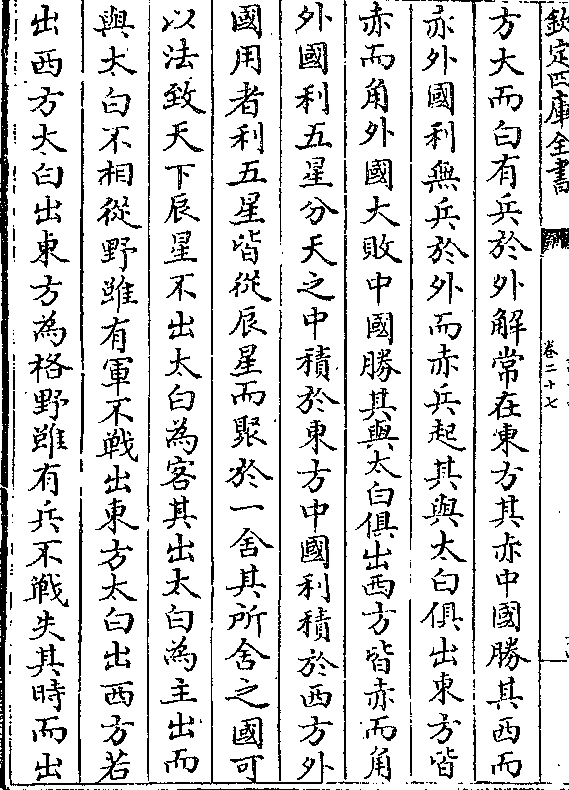 欽定四庫全書
卷二十七
方大而白有兵於外解常在東方其赤中國勝其西而
赤外國利無兵於外而赤兵起其與太白俱出東方皆
赤而角外國大敗中國勝其與太白俱出西方皆赤而角
外國利五星分天之中積於東方中國利積於西方外
國用者利五星皆從辰星而聚於一舍其所舍之國可
以法致天下辰星不出太白為客其出太白為主出而
與太白不相從野雖有軍不戰出東方太白出西方若
出西方太白出東方為格野雖有兵不戰失其時而出